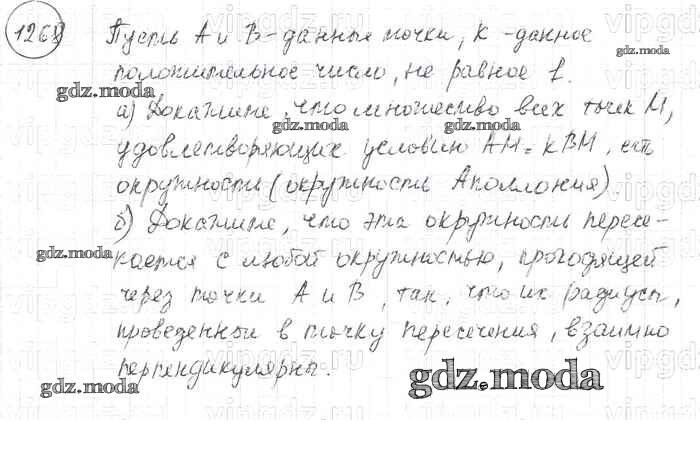 1268 Пусть А и В - данные точки, k - данное
положительное число, не равное 1.
а) Докажите, что множество всех точек М,
удовлетворяющих условию АМ = kВМ, есть
окружность (окружность Аполлония).
б) Докажите, что эта окружность пересе-
кается с любой окружностью, проходящей
через точки А и В, так, что их радиусы,
проведенные в точку пересечения, взаимно
перпендикулярны.
gdz.moda
gdz.moda
gdz.moda
gdz.moda
gdz.moda
gdz.moda
gdz.moda